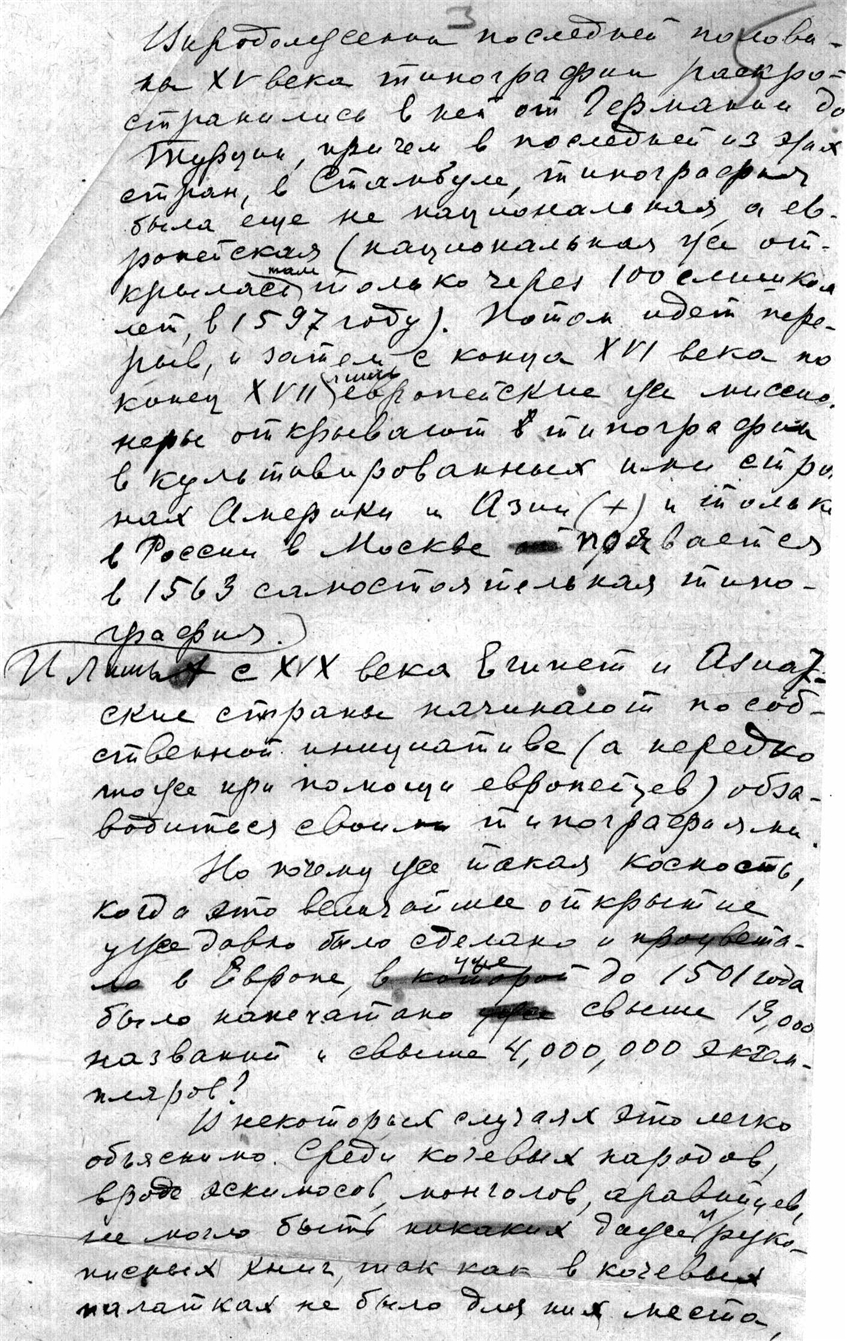 3
В продолжении последней полови-
ны XV века типографии распро-
странились в ней от Германии до
Турции, причем в последней из этих
стран, в Стамбуле, типография
была еще не национальная, а ев-
ропейская (национальная же от-
крылась там только через 100 слишком
лет, в 1597 году). Потом идет пере-
рыв, и затем с конца XVI века по
конец XVII лишь европейские же миссио-
неры открывают типографии
в культивированных ими стра
нах Америки и Азии (+) и только
в России в Москве появляется
в 1563 самостоятельная типо-
графия.)
И лишь с XIX века Египет и Азиат-
ские страны начинают по соб-
ственной инициативе (а нередко
тоже при помощи европейцев) обза-
водиться своими типографиями.
Но почему же такая косность,
когда это величайшее открытие
уже давно было сделано и процвета-
ло в Европе, в которой уже до 1501 года
было напечатано свыше 13,000
названий и свыше 4,000,000 экзем-
пляров?
В некоторых случаях это легко
объяснимо. Среди кочевых народов,
вроде эскимосов, монголов, аравийцев,
не могло быть никаких даже и руко-
писных книг, так как в кочевых
палатках не было для них места,